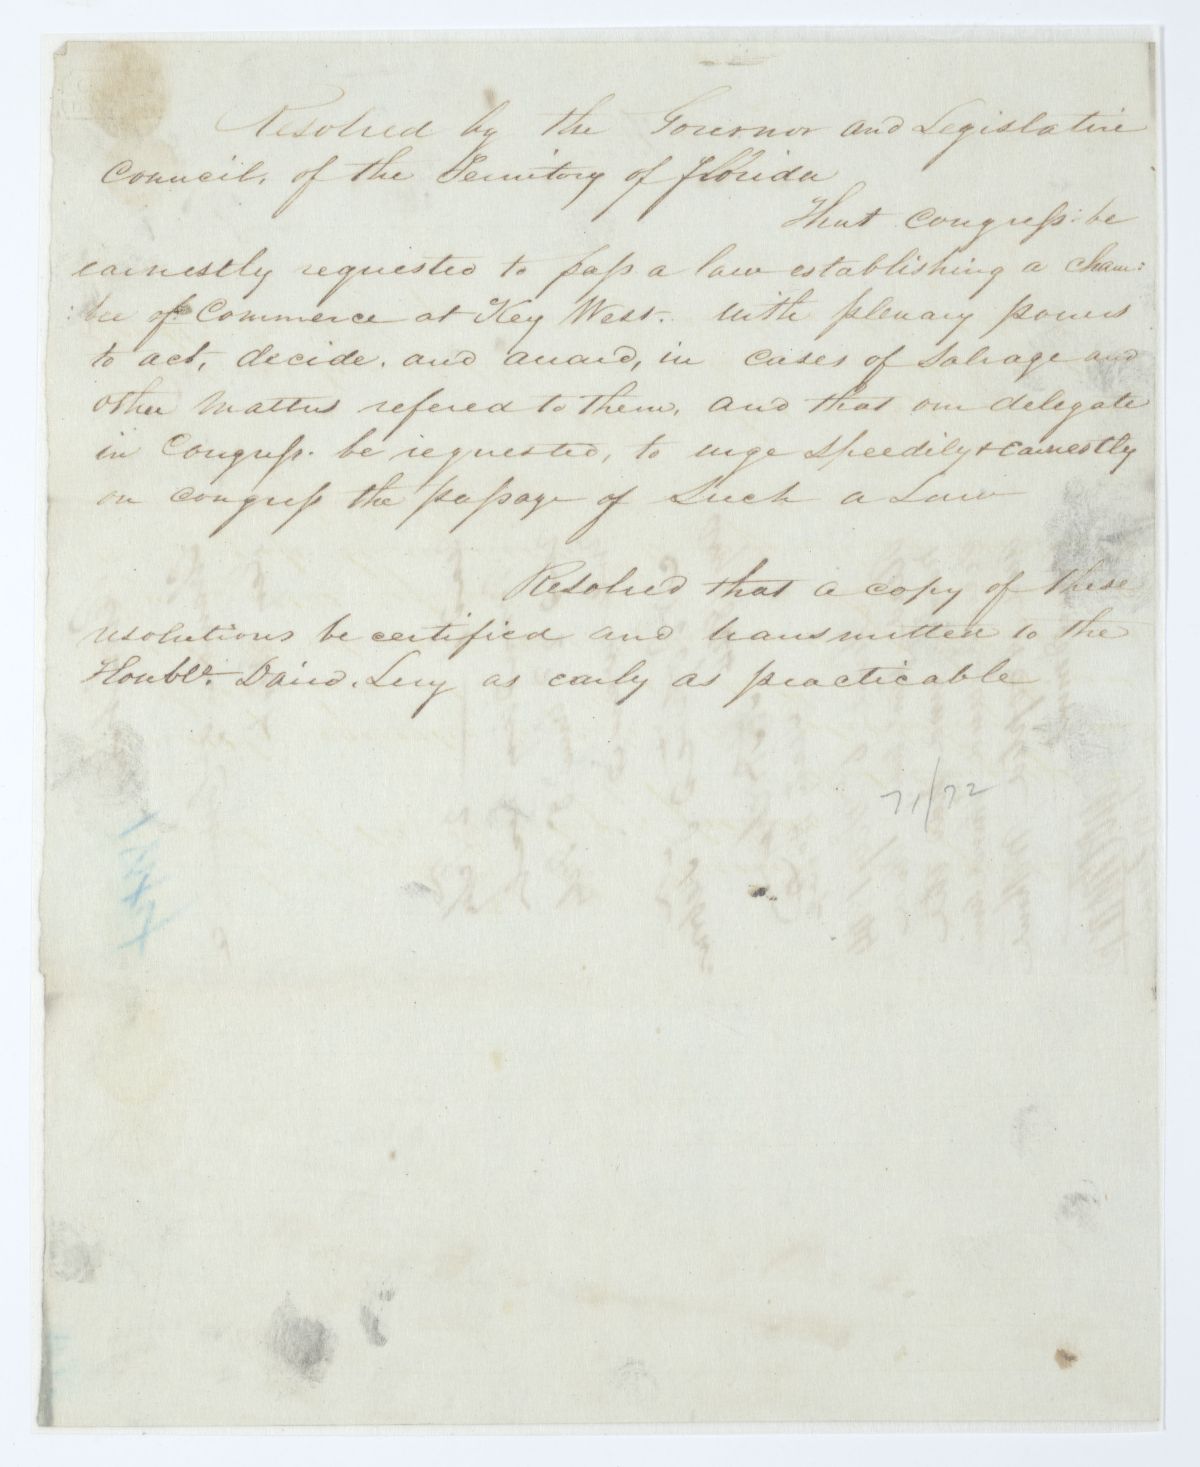 Resolved by the Governor and Legislative
Council, of the Territory of Florida
That Congress be
earnestly requested to pass a law establishing a cham:
:ber of Commerce at Key West. with plenary powers
to act, decide, and award, in cases of Salvage and
other matters refered to them, and that our delegate
in Congress. be requested, to urge speedily & earnestly
on congress the passage of Such a Law
Resolved that a copy of these
resolutions be certified and transmitted to the
Honble. David. Levy as early as practicable
71/72